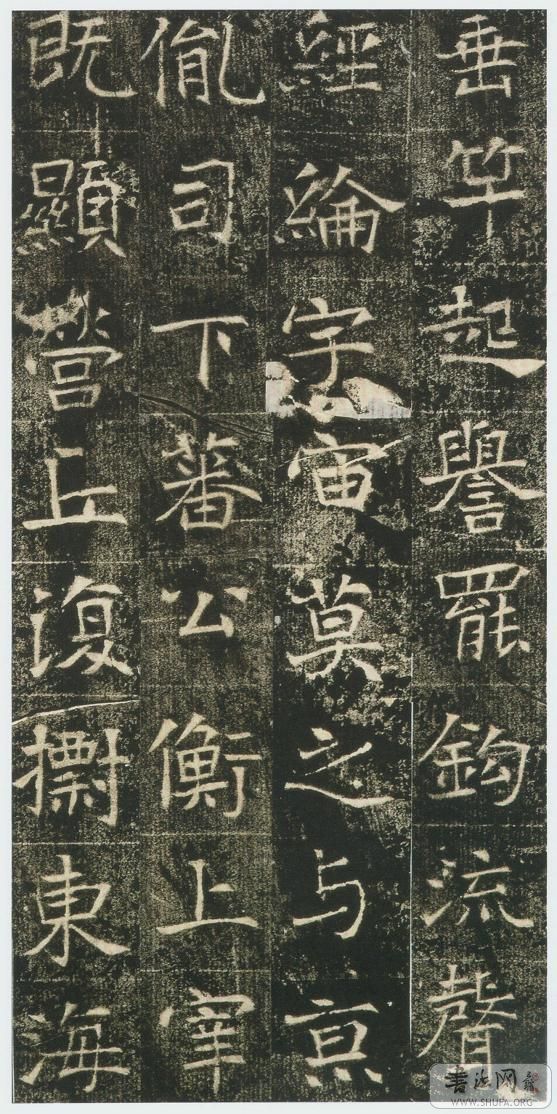 垂竿起譽罷鈎流聲
經綸宇宙莫之与亰
胤司下蕃公衡上宰
既顯營丘復摽東海
書法网
WWW.SHUFA.ORG